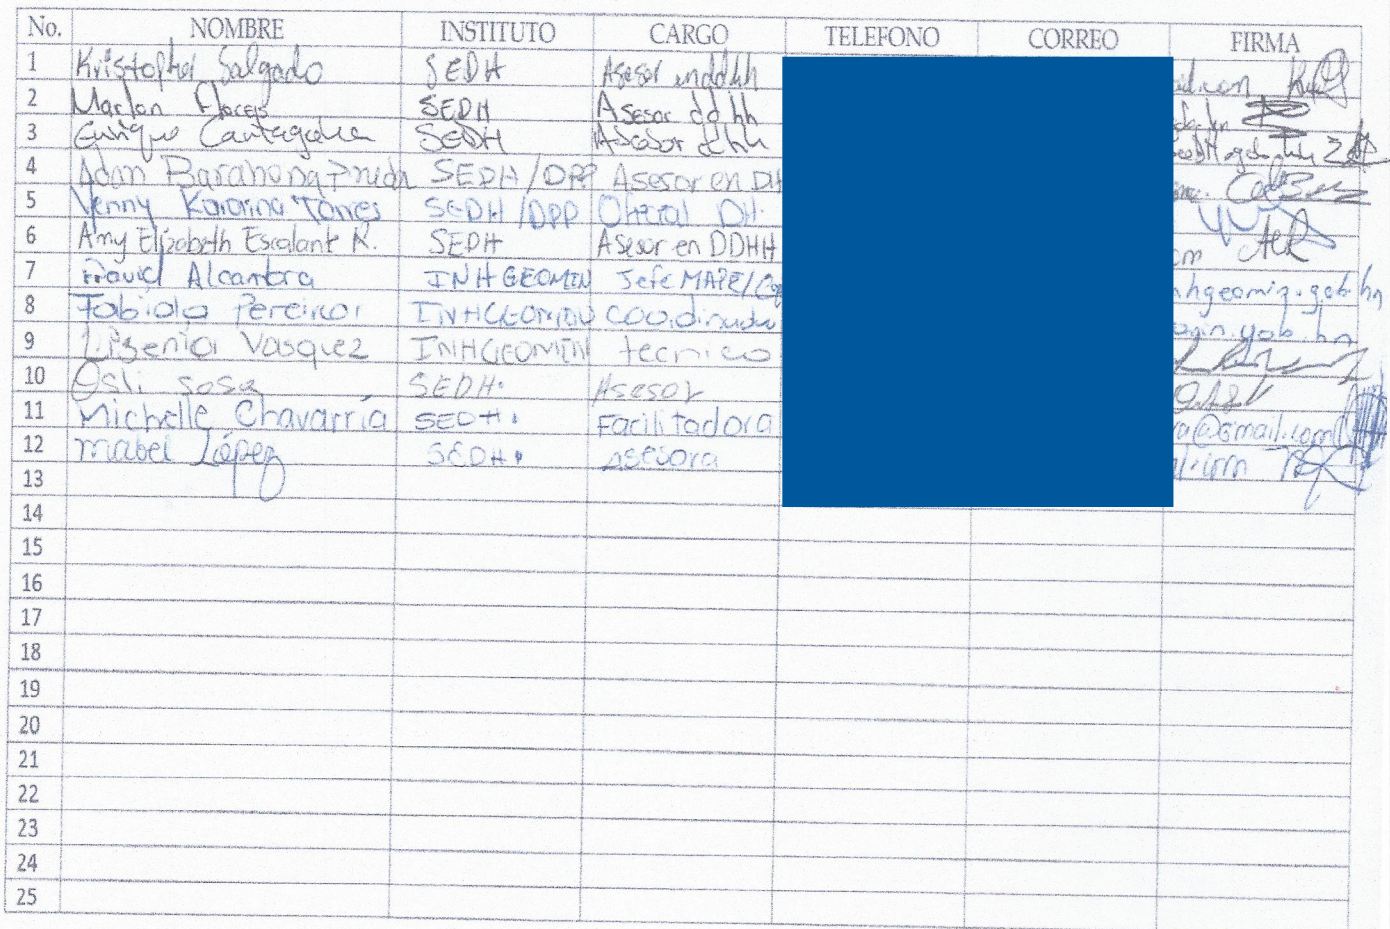 No. NOMBRE INSTITUTO CARGO TELEFONO CORREO FIRMA
1 Kristopher Salgado SEDH Asesor en ddhh
2 Marlon Flores SEDH Asesor dd hh
3 Enrique SEDH Asesor ddhh
4 Adan Barahona SEDH/DPP Asesor en DH
5 Yenny Karorina Torres SEDH/DPP DH.
6 Amy Elizabeth Escalante R. SEDH Asesor en DDHH
7 David Alcantara INHGEOMIN Jefe MAPE/ nhgeomin.gob.hn
8 Fabiola INHGEOMIN
9 Vasquez INHGEOMIN tecnico
10 Osli sosa SEDH. Asesor
11 Michelle Chavarría SEDH. Facilitadora ra@Gmail.com
12 Mabel López SEDH. Asesora
13
14
15
16
17
18
19
20
21
22
23
24
25